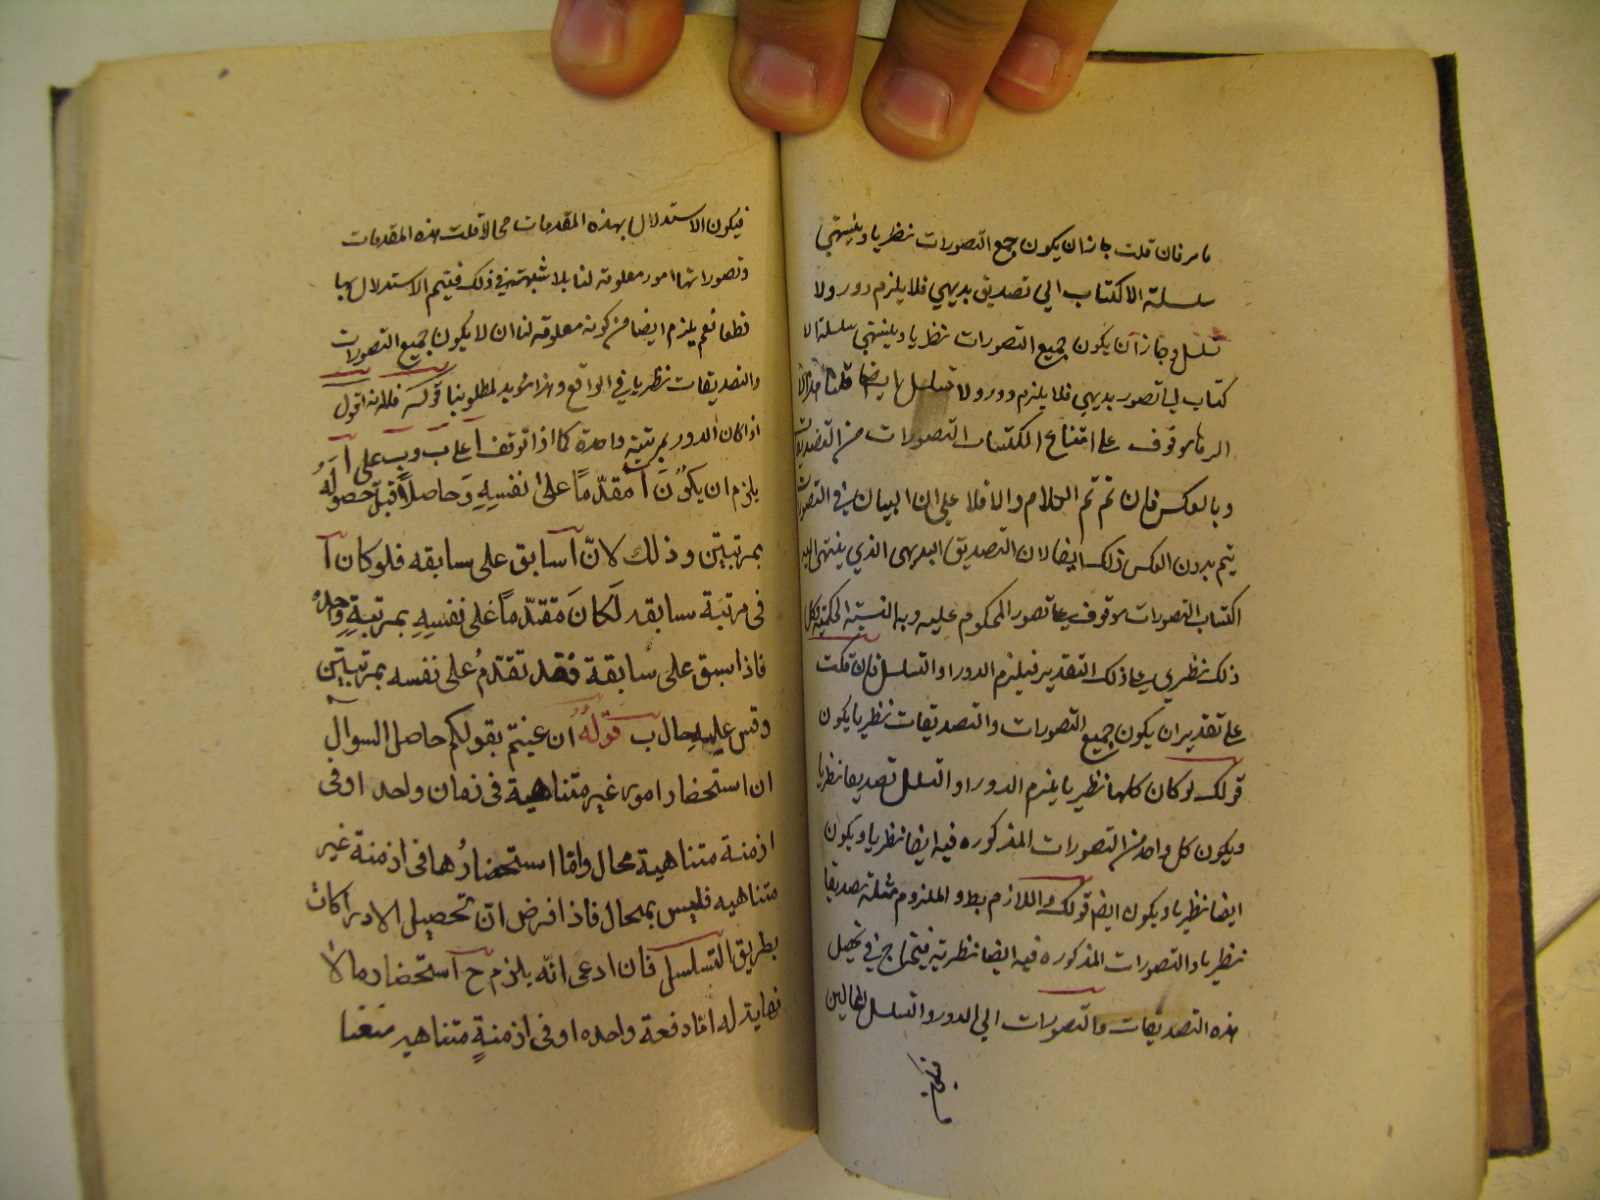 ما مر فان قلت جاز ان يكون جميع التصورات نظريا وينتهي
سلسلة الاكتساب الي تصديق بديهي فلا يلزم دور ولا
تسلسل وجاز ان يكون جميع التصورات نظريا وينتهي سلسلة الا
كتساب الي تصور بديهي فلا يلزم دور ولا تسلسل ايضا قلنا هذا
موقوف علي امتناع اكتساب التصورات من التصديقات
وبالعكس فان تم تم الكلام والا فلا علي ان البيان في التصورات
يتم بدون العكس ذلك ايضا لان التصديق البديهي الذي ينتهي اليه
اكتساب التصورات موقوف علي تصور المحكوم عليه وبه والنسبة الحكمية وكل
ذلك نظري علي ذلك التقدير فيلزم الدور او التسلسل فان قلت
علي تقدير ان يكون جميع التصورات والتصديقات نظريا يكون
قولك لو كان كلها نظريا يلزم الدور او التسلسل تصديقا نظريا
ويكون كل واحد من التصورات المذكوره فيه ايضا نظريا ويكون
ايضا نظريا ويكون ايضا قولك واللازم بط والملزوم مثله تصديقا
نظريا والتصورات المذكوره فيه ايضا نظرية فيحتاج في تحصيل
هذه التصديقات والتصورات الي الدور والتسلسل المحالين
فيكون
فيكون الاستدلال بهذه المقدمات محالا قلت هذه المقدمات
وتصوراتها امور معلومة لنا بلا شبهة في ذلك فيتم الاستدلال بها
قطعا نعم يلزم ايضا من كونه معلومة لنا ان لا يكون جميع التصورات
والتصديقات نظريا في الواقع وهذا مؤيد لمطلوبنا قوله فلانه اقول
اذا كان الدور بمرتبة واحدة كما اذا توقف آ علي ب وب علي آ
يلزم ان يكون آ مقدّما على نفسه وحاصلا قبل حصوله
بمرتبتين وذلك لانّ آ سابق على سابقه فلو كان آ
في مرتبة سابقه لكان متقدّما على نفسه بمرتبة واحدة
فاذا سبق على سابقة فقد تقدّم على نفسه بمرتبتين
وقس عليه حال ب قوله ان عنيتم بقولكم حاصل السوال
ان استحضار امور غير متناهية في زمان واحد او في
ازمنة متناهية محال واما استحضارها في ازمنة غير
متناهيه فليس بمحال فاذا فرض انّ تحصيل الادراكات
بطريق التسلسل فان ادعى انّه يلزم ح استحضار ما لا
نهاية له امّا دفعة واحده او في ازمنة متناهيه منعنا